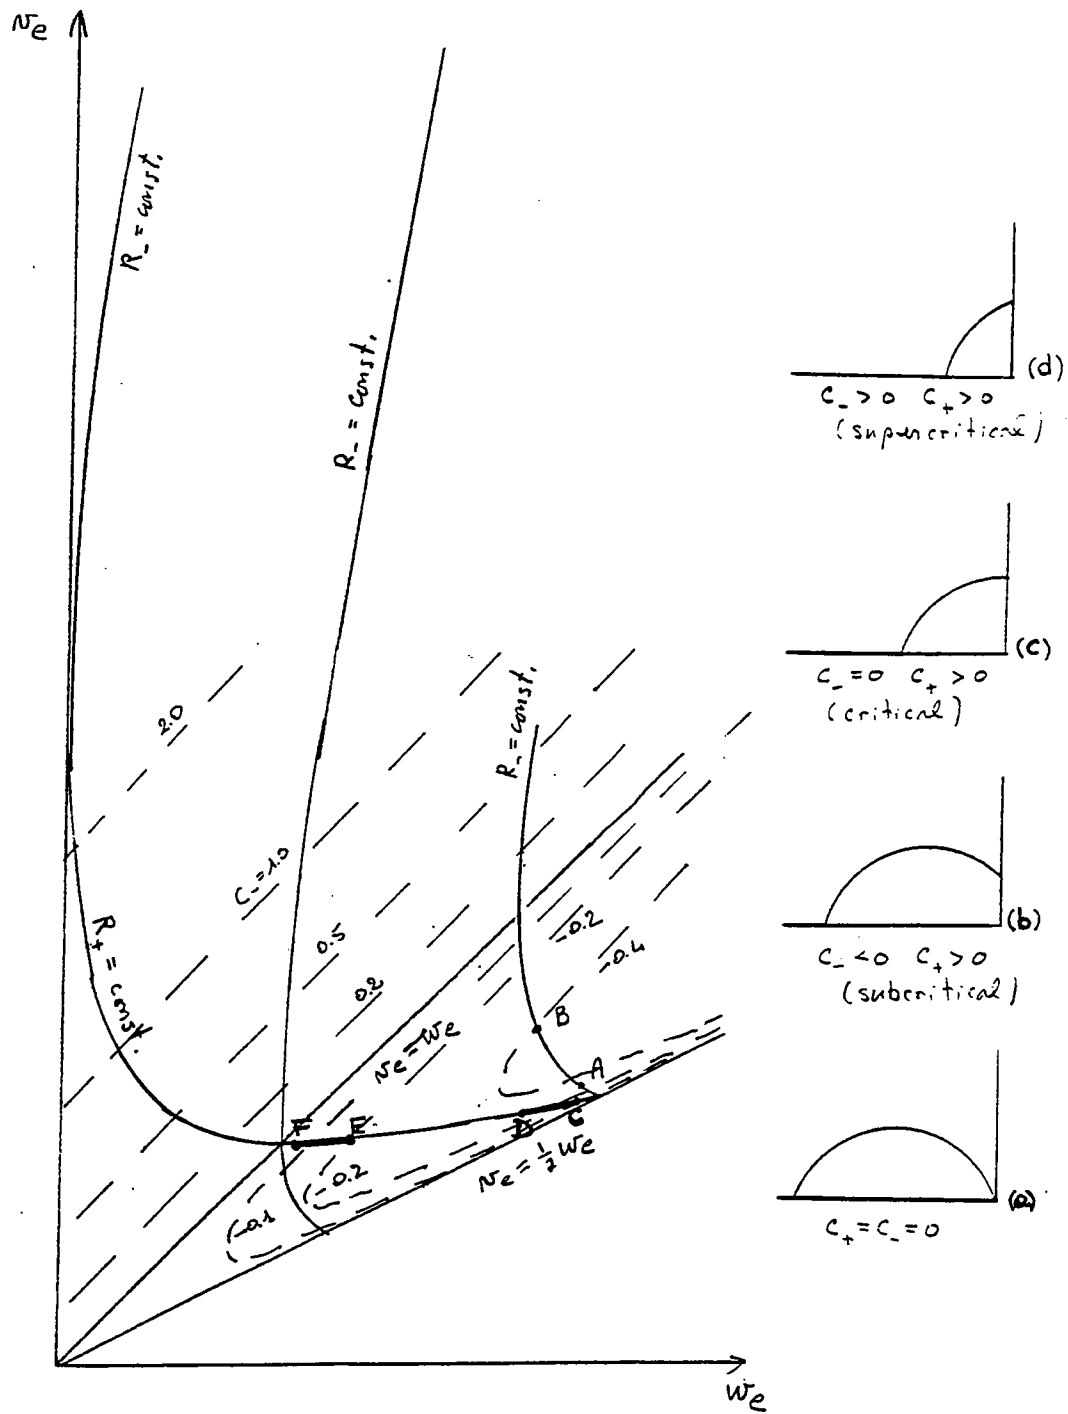 v_e
R_- = const.
R_- = const.
R_- = const.
2.0
C_- = 1.0
0.5
0.2
-0.2
-0.4
R_+ = const.
v_e = w_e
B
A
F
E
D
C
-0.2
-0.1
v_e = 1/2 w_e
w_e
(d)
C_- > 0 C_+ > 0
(supercritical)
(c)
C_- = 0 C_+ > 0
(critical)
(b)
C_- < 0 C_+ > 0
(subcritical)
(a)
C_+ = C_- = 0